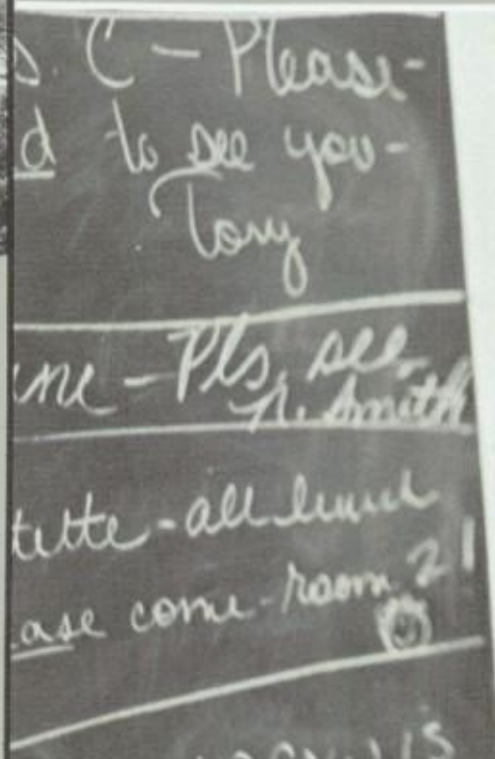 s. C - Please-
d to see you-
Tony
ine - Pls. see
N. Smith
tette - all lunch
ase come - room 21
is